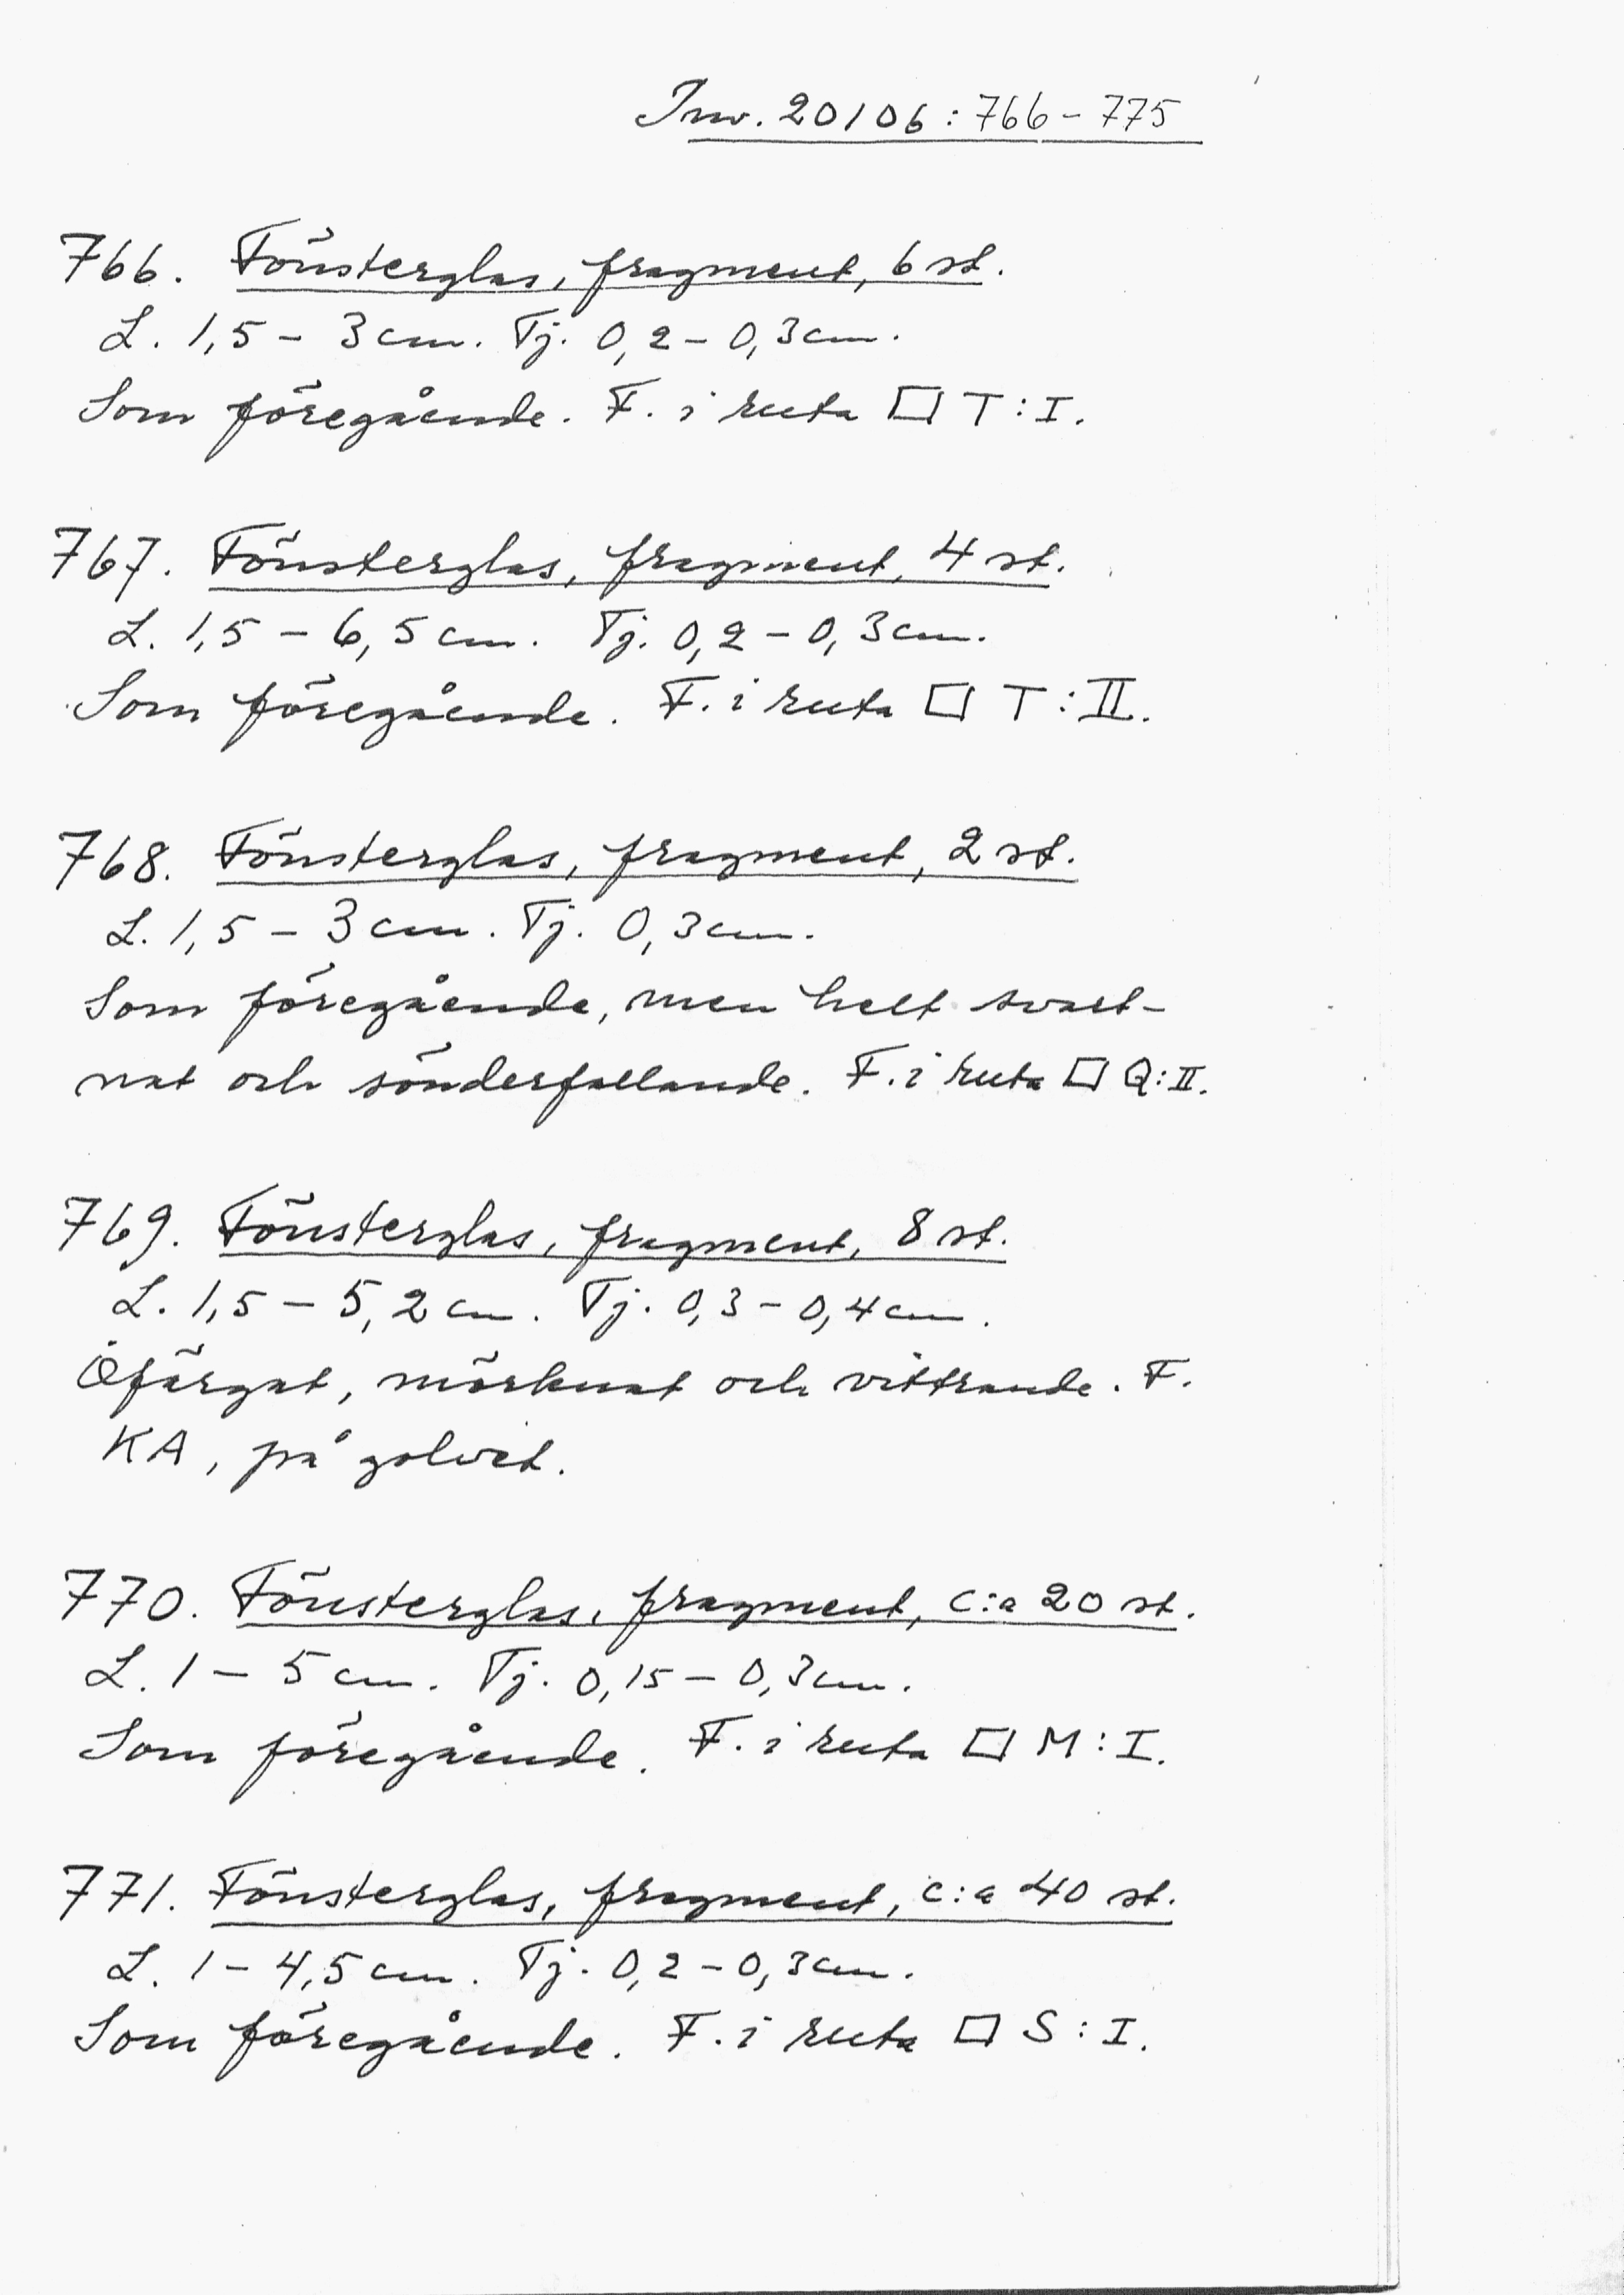 Inv. 20106:766-775
766. Fönsterglas, fragment, 6 st.
L. 1,5 - 3 cm. Tj. 0,2 - 0,3 cm.
Som föregående. F. i ruta □ T:I.
767. Fönsterglas, fragment, 4 st.
L. 1,5 - 6,5 cm. Tj. 0,2 - 0,3 cm.
Som föregående. F. i ruta □ T:II.
768. Fönsterglas, fragment, 2 st.
L. 1,5 - 3 cm. Tj. 0,3 cm.
Som föregående, men helt svart-
nat och sönderfallande. F. i ruta □ Q:II.
769. Fönsterglas, fragment, 8 st.
L. 1,5 - 5,2 cm. Tj. 0,3 - 0,4 cm.
Ofärgat, mörknat och vittrande. F.
KA, på golvet.
770. Fönsterglas, fragment, c:a 20 st.
L. 1 - 5 cm. Tj. 0,15 - 0,3 cm.
Som föregående. F. i ruta □ M:I.
771. Fönsterglas, fragment, c:a 40 st.
L. 1 - 4,5 cm. Tj. 0,2 - 0,3 cm.
Som föregående. F. i ruta □ S:I.